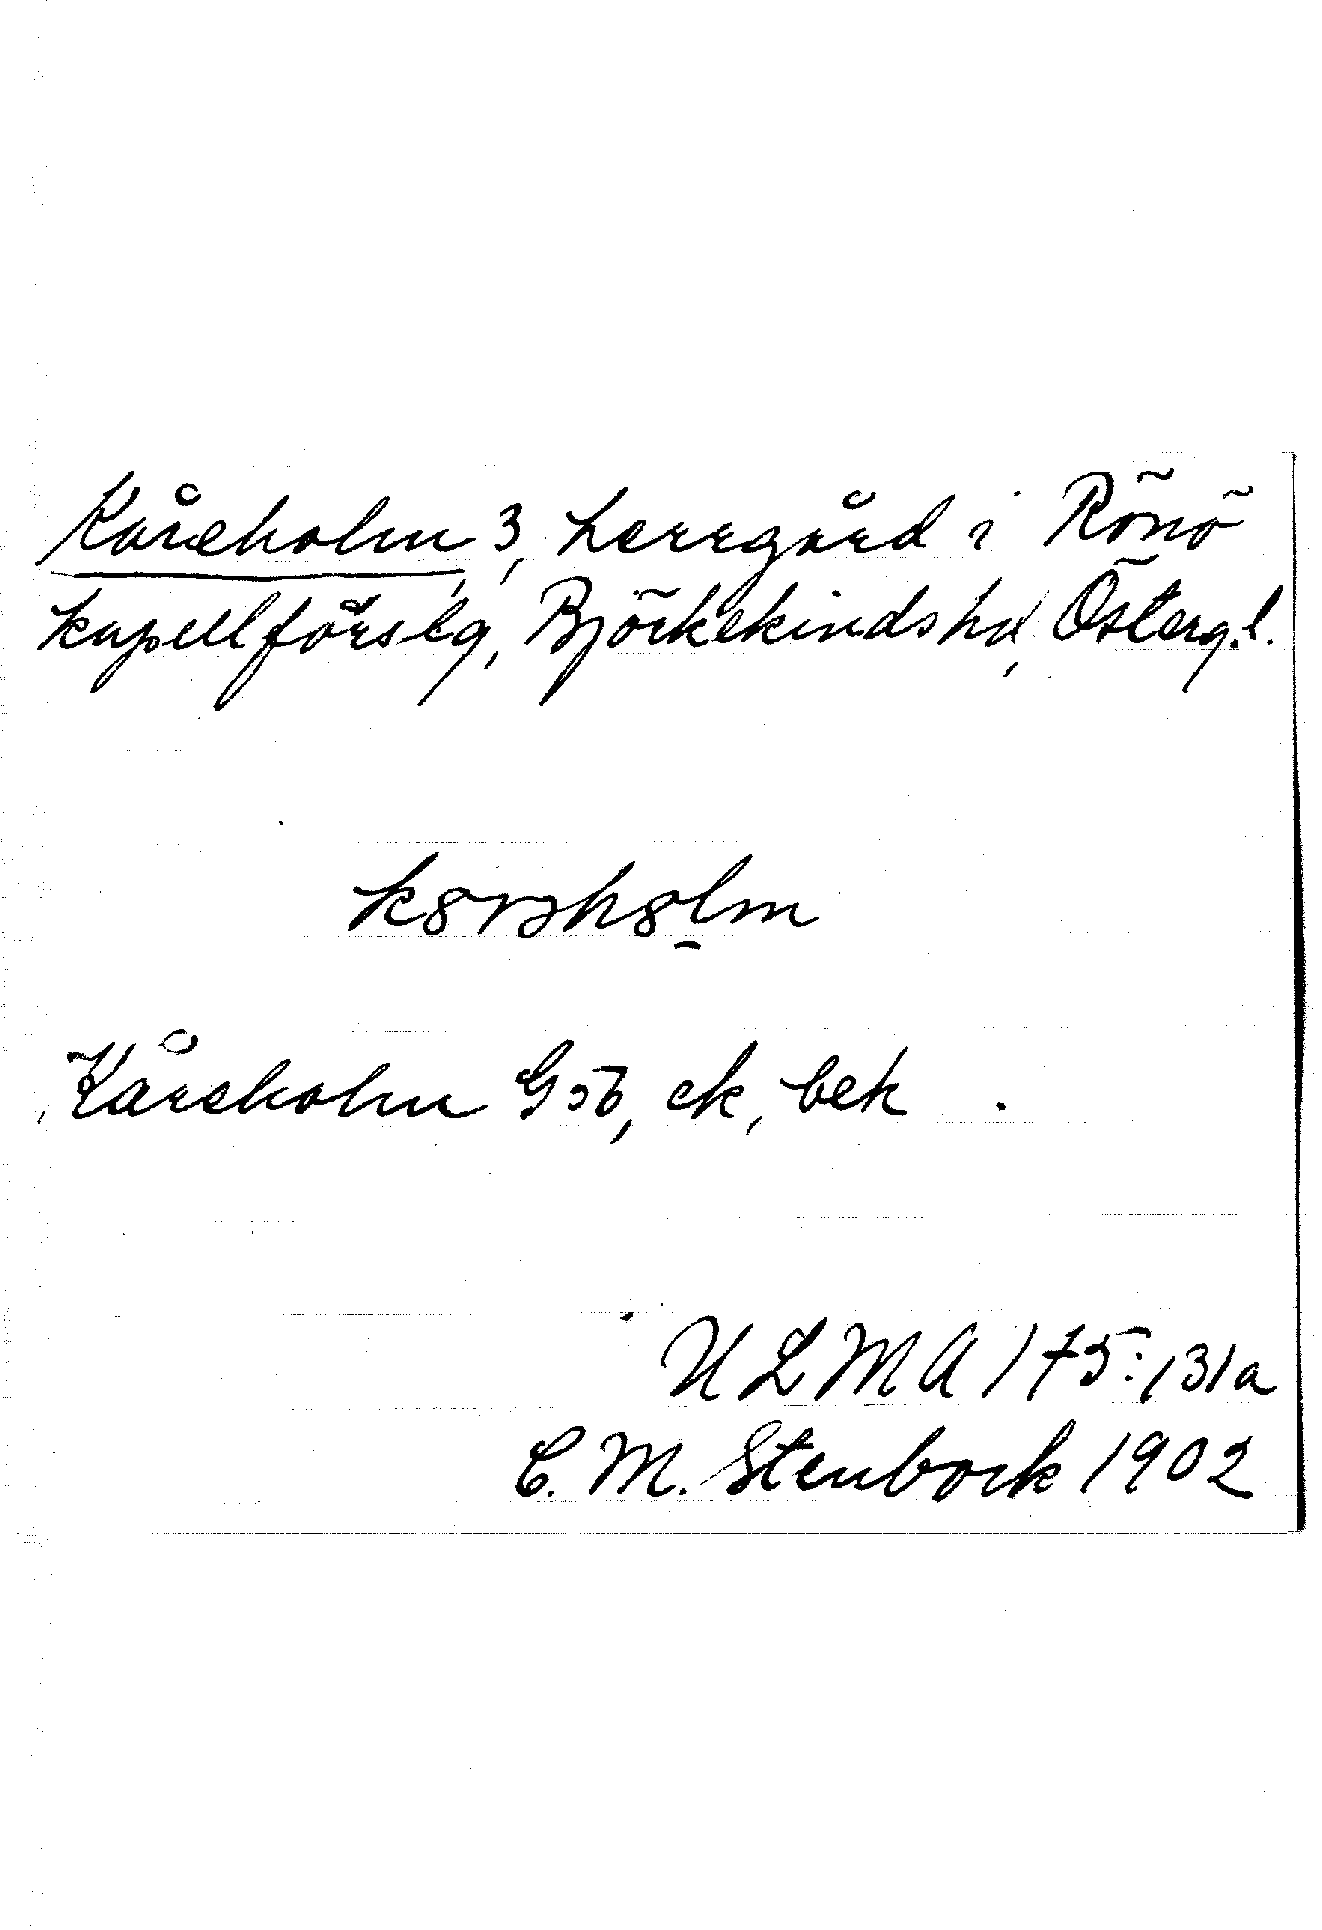 Kåreholm 3, herrgård i Rönö
kapellförslg, Björkekindshd, Österg.l.
Kåreholm Gsb, ek, bek
ULMA 175:131a
C. M. Stenbock 1902